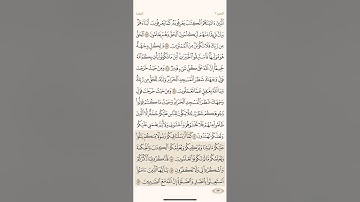 ٱلَّذِينَ ءَاتَيْنَٰهُمُ ٱلْكِتَٰبَ يَعْرِفُونَهُۥ كَمَا يَعْرِفُونَ أَبْنَآءَهُمْ وَإِنَّ
فَرِيقًا مِّنْهُمْ لَيَكْتُمُونَ ٱلْحَقَّ وَهُمْ يَعْلَمُونَ ۝ ٱلْحَقُّ
مِن رَّبِّكَ فَلَا تَكُونَنَّ مِنَ ٱلْمُمْتَرِينَ ۝ وَلِكُلٍّ وِجْهَةٌ
هُوَ مُوَلِّيهَا فَٱسْتَبِقُوا۟ ٱلْخَيْرَٰتِ أَيْنَ مَا تَكُونُوا۟ يَأْتِ بِكُمُ ٱللَّهُ
جَمِيعًا إِنَّ ٱللَّهَ عَلَىٰ كُلِّ شَىْءٍ قَدِيرٌ ۝ وَمِنْ حَيْثُ خَرَجْتَ
فَوَلِّ وَجْهَكَ شَطْرَ ٱلْمَسْجِدِ ٱلْحَرَامِ وَإِنَّهُۥ لَلْحَقُّ مِن رَّبِّكَ
وَمَا ٱللَّهُ بِغَٰفِلٍ عَمَّا تَعْمَلُونَ ۝ وَمِنْ حَيْثُ خَرَجْتَ فَوَلِّ
وَجْهَكَ شَطْرَ ٱلْمَسْجِدِ ٱلْحَرَامِ وَحَيْثُ مَا كُنتُمْ فَوَلُّوا۟
وُجُوهَكُمْ شَطْرَهُۥ لِئَلَّا يَكُونَ لِلنَّاسِ عَلَيْكُمْ حُجَّةٌ إِلَّا ٱلَّذِينَ
ظَلَمُوا۟ مِنْهُمْ فَلَا تَخْشَوْهُمْ وَٱخْشَوْنِى وَلِأُتِمَّ نِعْمَتِى عَلَيْكُمْ
وَلَعَلَّكُمْ تَهْتَدُونَ ۝ كَمَآ أَرْسَلْنَا فِيكُمْ رَسُولًا مِّنكُمْ يَتْلُوا۟
عَلَيْكُمْ ءَايَٰتِنَا وَيُزَكِّيكُمْ وَيُعَلِّمُكُمُ ٱلْكِتَٰبَ وَٱلْحِكْمَةَ
وَيُعَلِّمُكُم مَّا لَمْ تَكُونُوا۟ تَعْلَمُونَ ۝ فَٱذْكُرُونِىٓ أَذْكُرْكُمْ
وَٱشْكُرُوا۟ لِى وَلَا تَكْفُرُونِ ۝ يَٰٓأَيُّهَا ٱلَّذِينَ ءَامَنُوا۟
ٱسْتَعِينُوا۟ بِٱلصَّبْرِ وَٱلصَّلَوٰةِ إِنَّ ٱللَّهَ مَعَ ٱلصَّٰبِرِينَ ۝